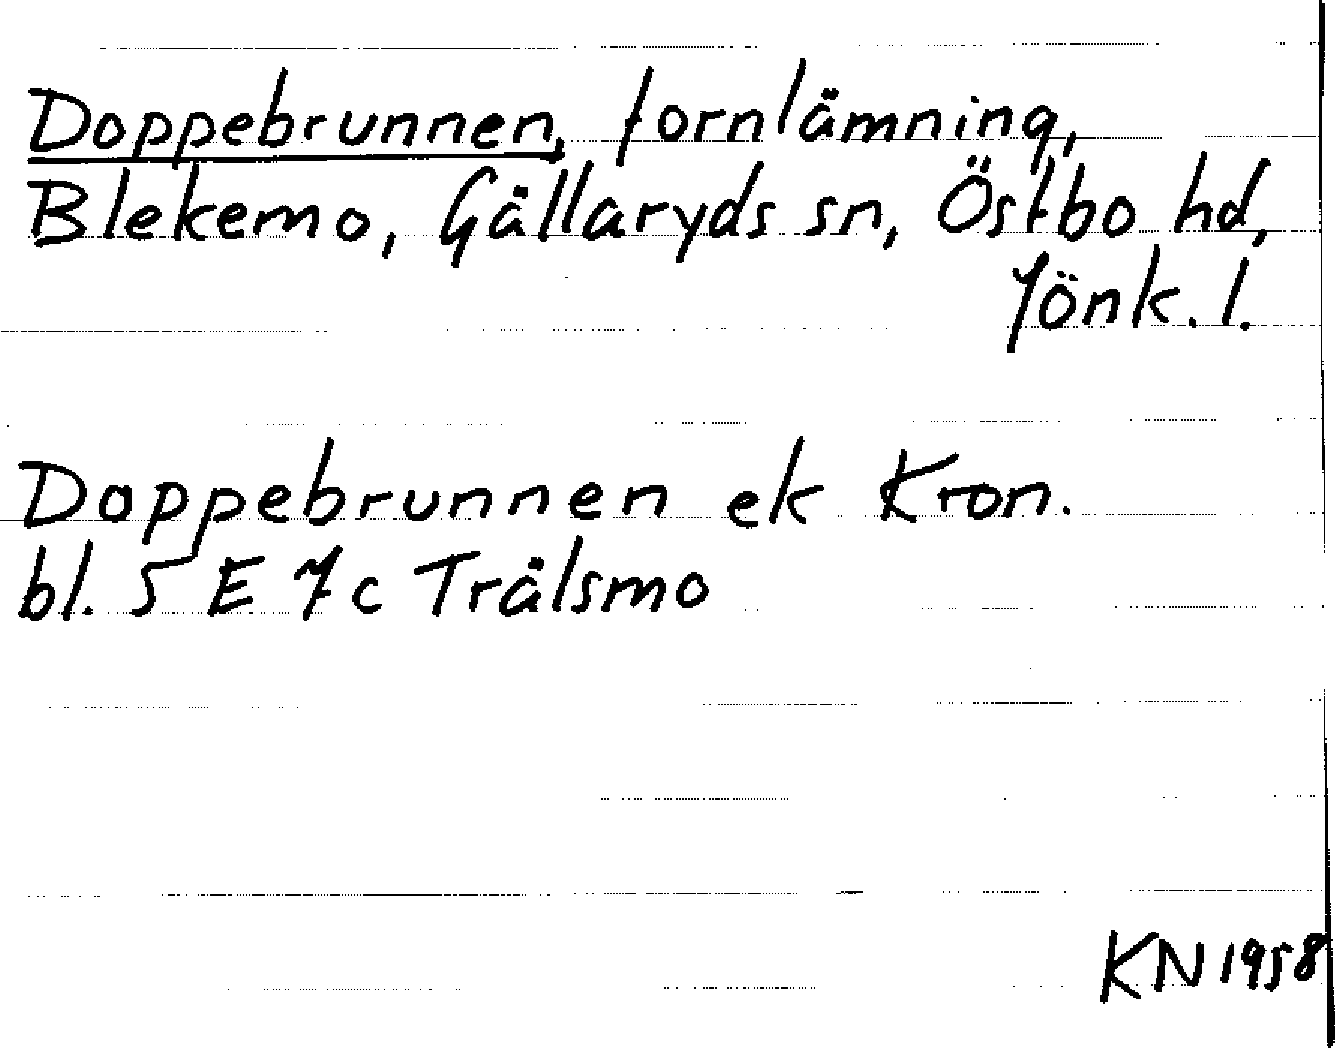 Doppebrunnen, fornlämning,
Blekemo, Gällaryds sn, Östbo hd,
Jönk. l.
Doppebrunnen ek Kron.
bl. 5 E 7c Trälsmo
KN 1958